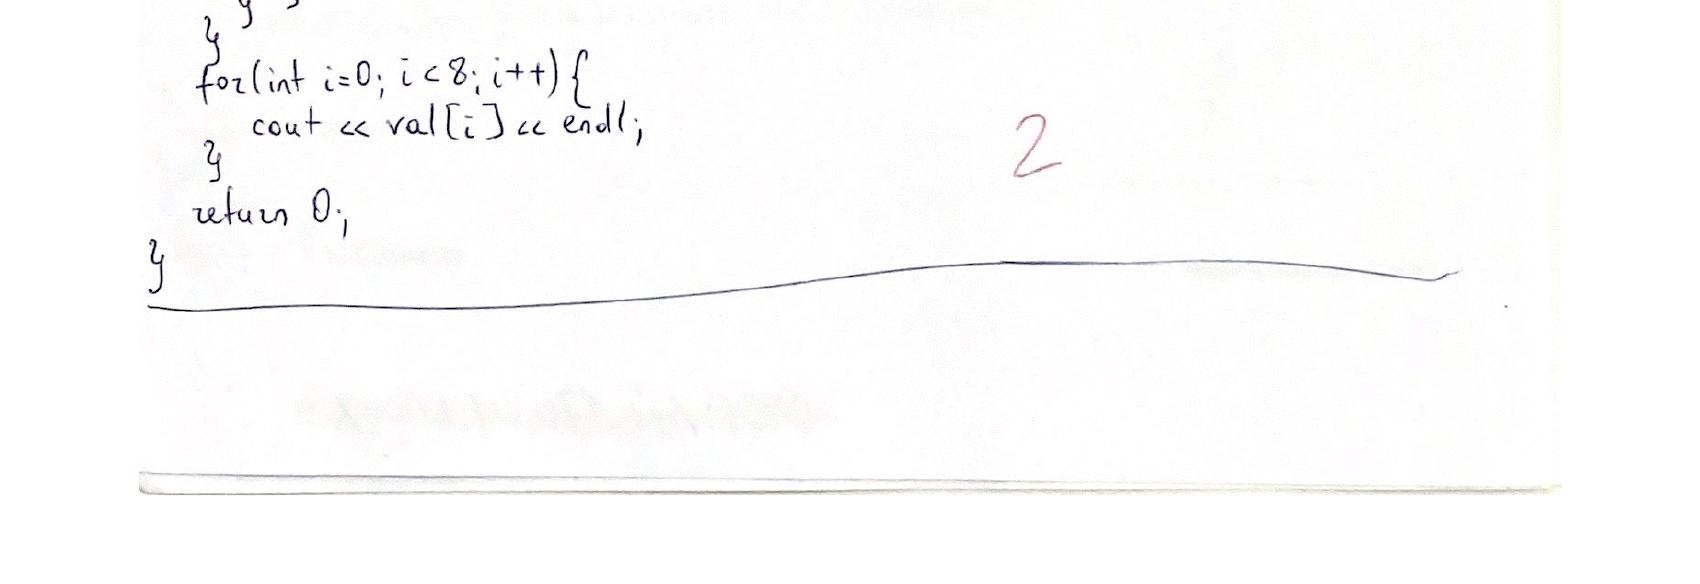 }
for(int i=0; i<8; i++){
cout << val[i] << endl;
}
2
return 0;
}